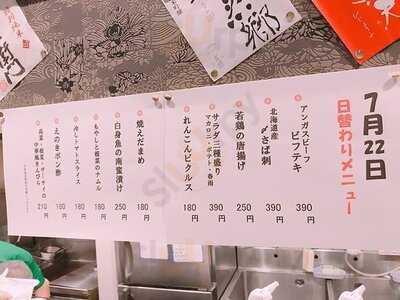 7月22日
日替わりメニュー
アンガスビーフ
ビフテキ
390円
北海道産
〆さば刺
390円
若鶏の唐揚げ
250円
サラダ三種盛り
マカロニ・ポテト・春雨
390円
れんこんピクルス
180円
焼えだまめ
180円
白身魚の南蛮漬け
250円
もやしと根菜のナムル
180円
冷しトマトスライス
180円
えのきポン酢
180円
中華風きんぴら
210円
郷